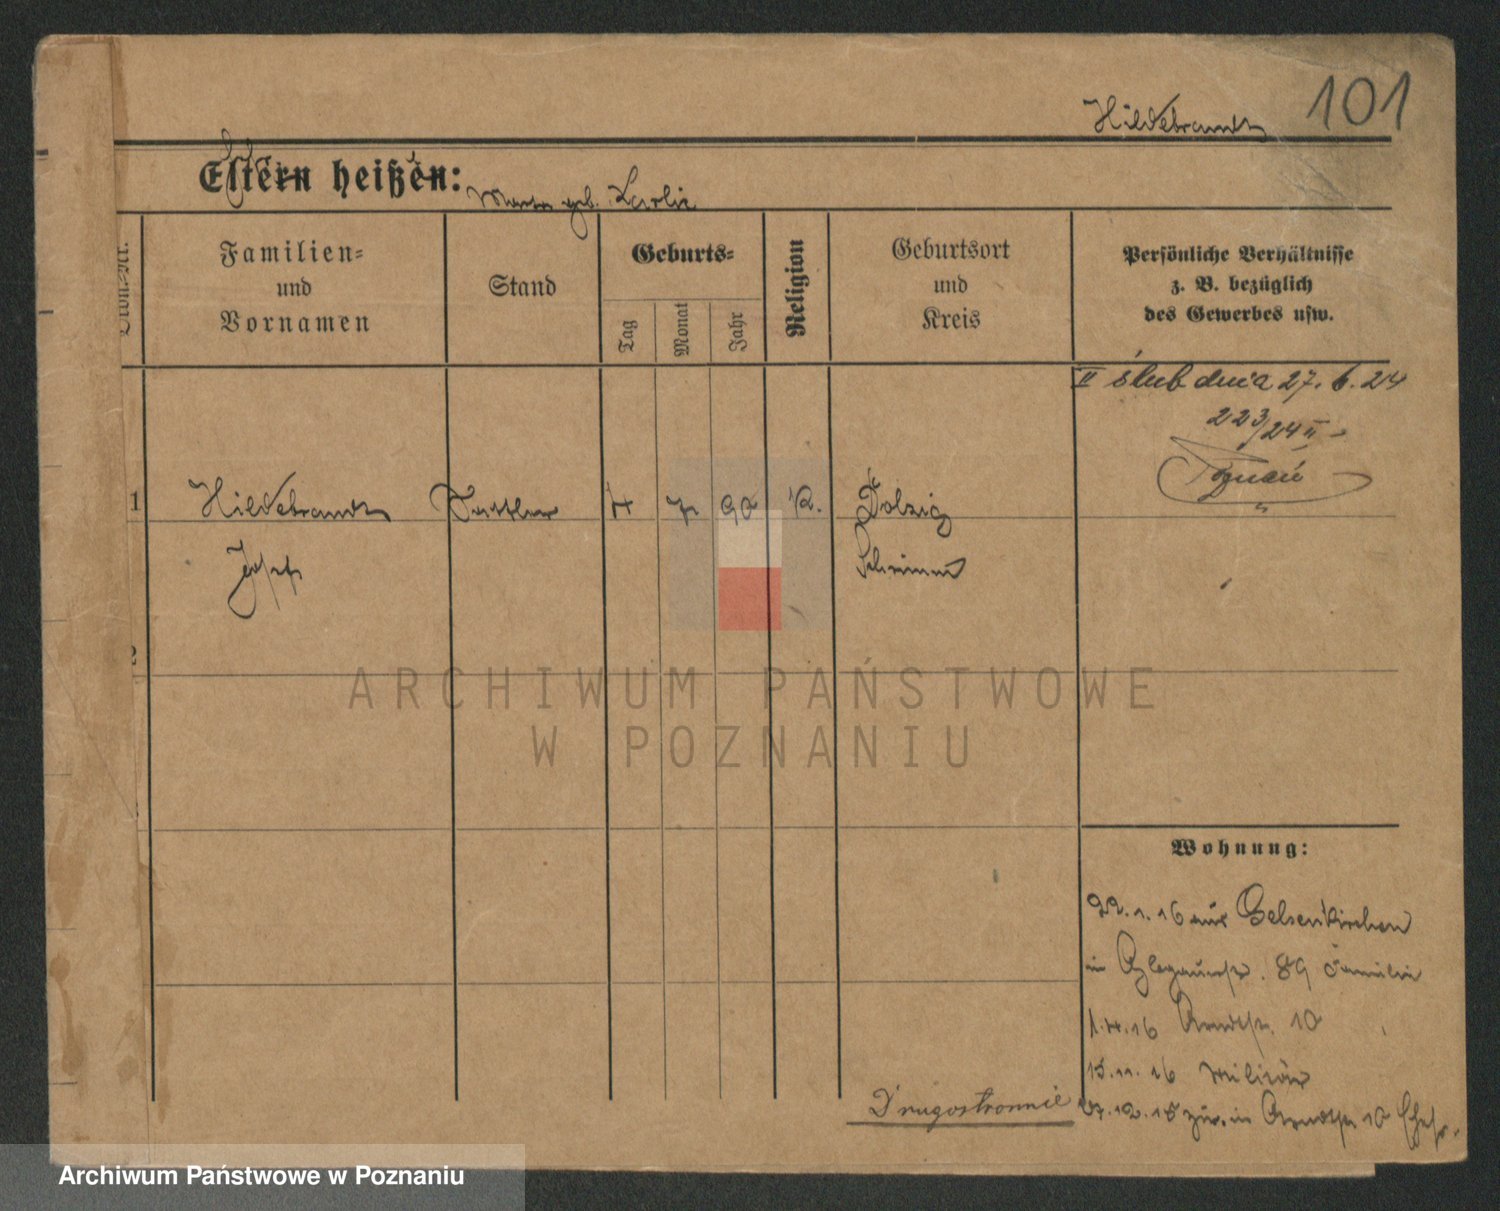 Hildebrandt 101
Eltern heißen: geb.
Ordn.-Nr.
Familien=
und
Vornamen
Stand
Geburts=
Tag
Monat
Jahr
Religion
Geburtsort
und
Kreis
Persönliche Verhältnisse
z. B. bezüglich
des Gewerbes usw.
II ślub dnia 27. 6. 24
223/24 II
Poznań
1 Hildebrandt Sattler 4 7 90 K. Dolzig
Josef Schrimm
2
ARCHIWUM PAŃSTWOWE
W POZNANIU
Wohnung:
22.1.16 aus Gelsenkirchen
in Glogauerstr. 89 Familie
1.4.16 Arndtstr. 10
15.11.16 Militär
27.12.18 zur. in Arndtstr. 10
Drugostronnie
Archiwum Państwowe w Poznaniu